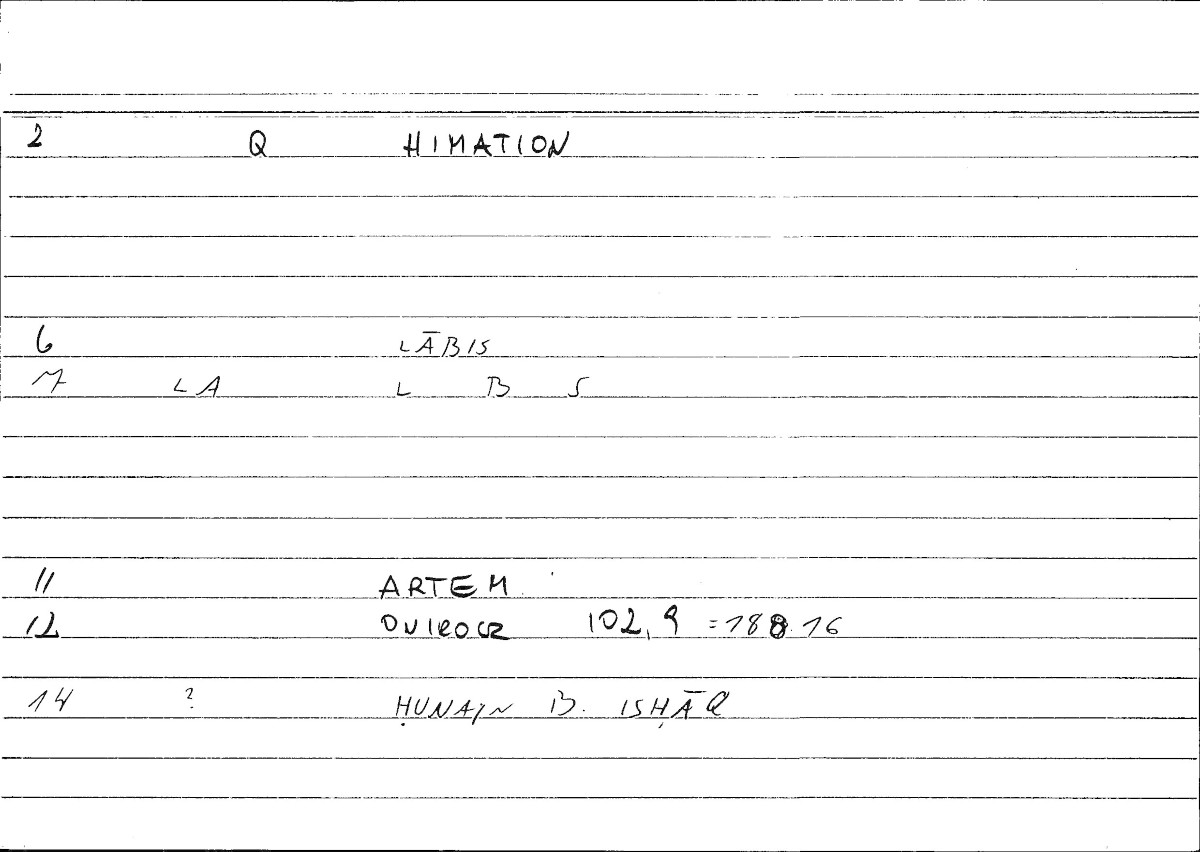 2 Q HIMATION
6 LĀBIS
7 LA L B S
11 ARTEM
12 102,9 =188.16
14 ? ḤUNAYN B. ISḤĀQ